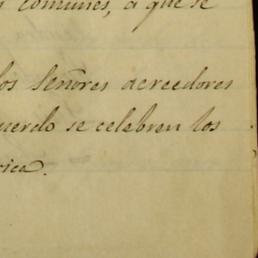 comunes, a que se
los Señores acreedores
uerdo se celebren los